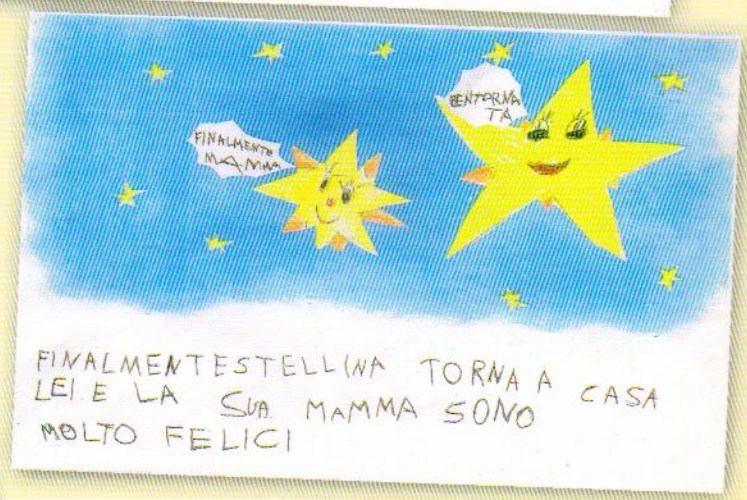 FINALMENTE
MAMMA
BENTORNA
TA
FINALMENTESTELLINA TORNA A CASA
LEI E LA SUA MAMMA SONO
MOLTO FELICI